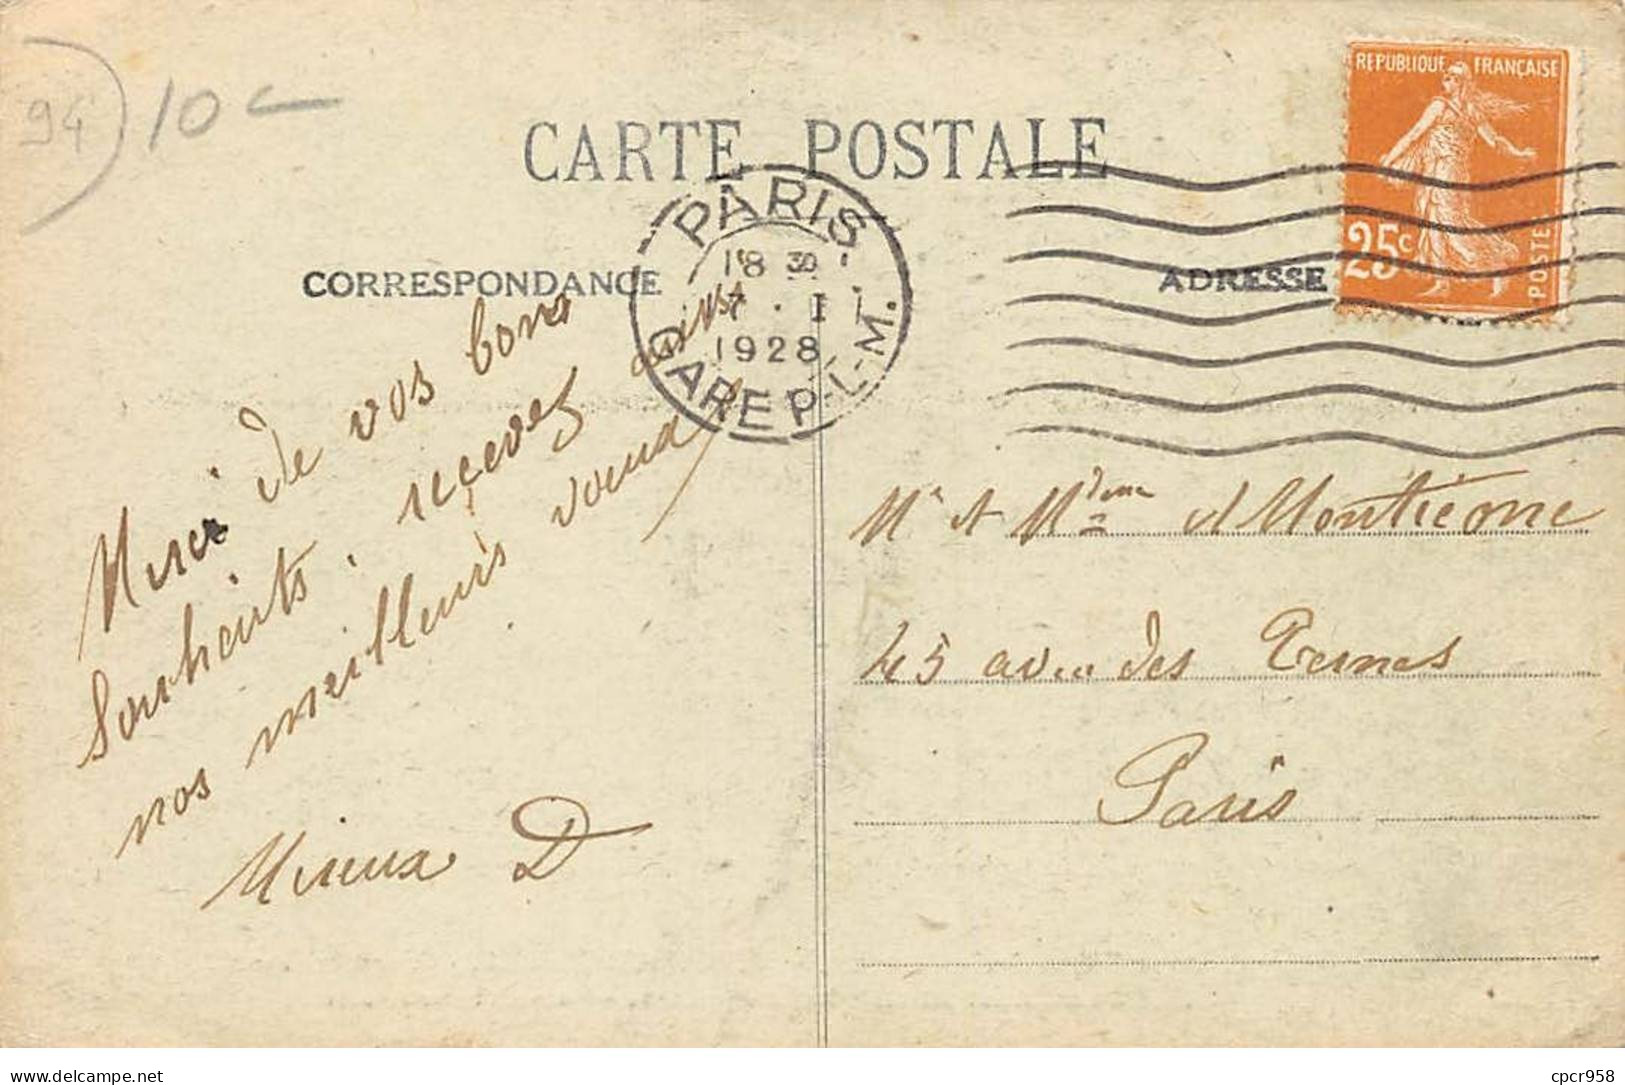 94 10
CARTE POSTALE
REPUBLIQUE FRANÇAISE
25c
POSTES
PARIS
18 30
I
1928
GARE P.-L.-M.
CORRESPONDANCE
ADRESSE
Merci de vos bons
Souhaits. reçevez ainsi
nos meilleurs voeux
D
Mr et Mdme
45 avec des Ternes
Paris
cpcr958